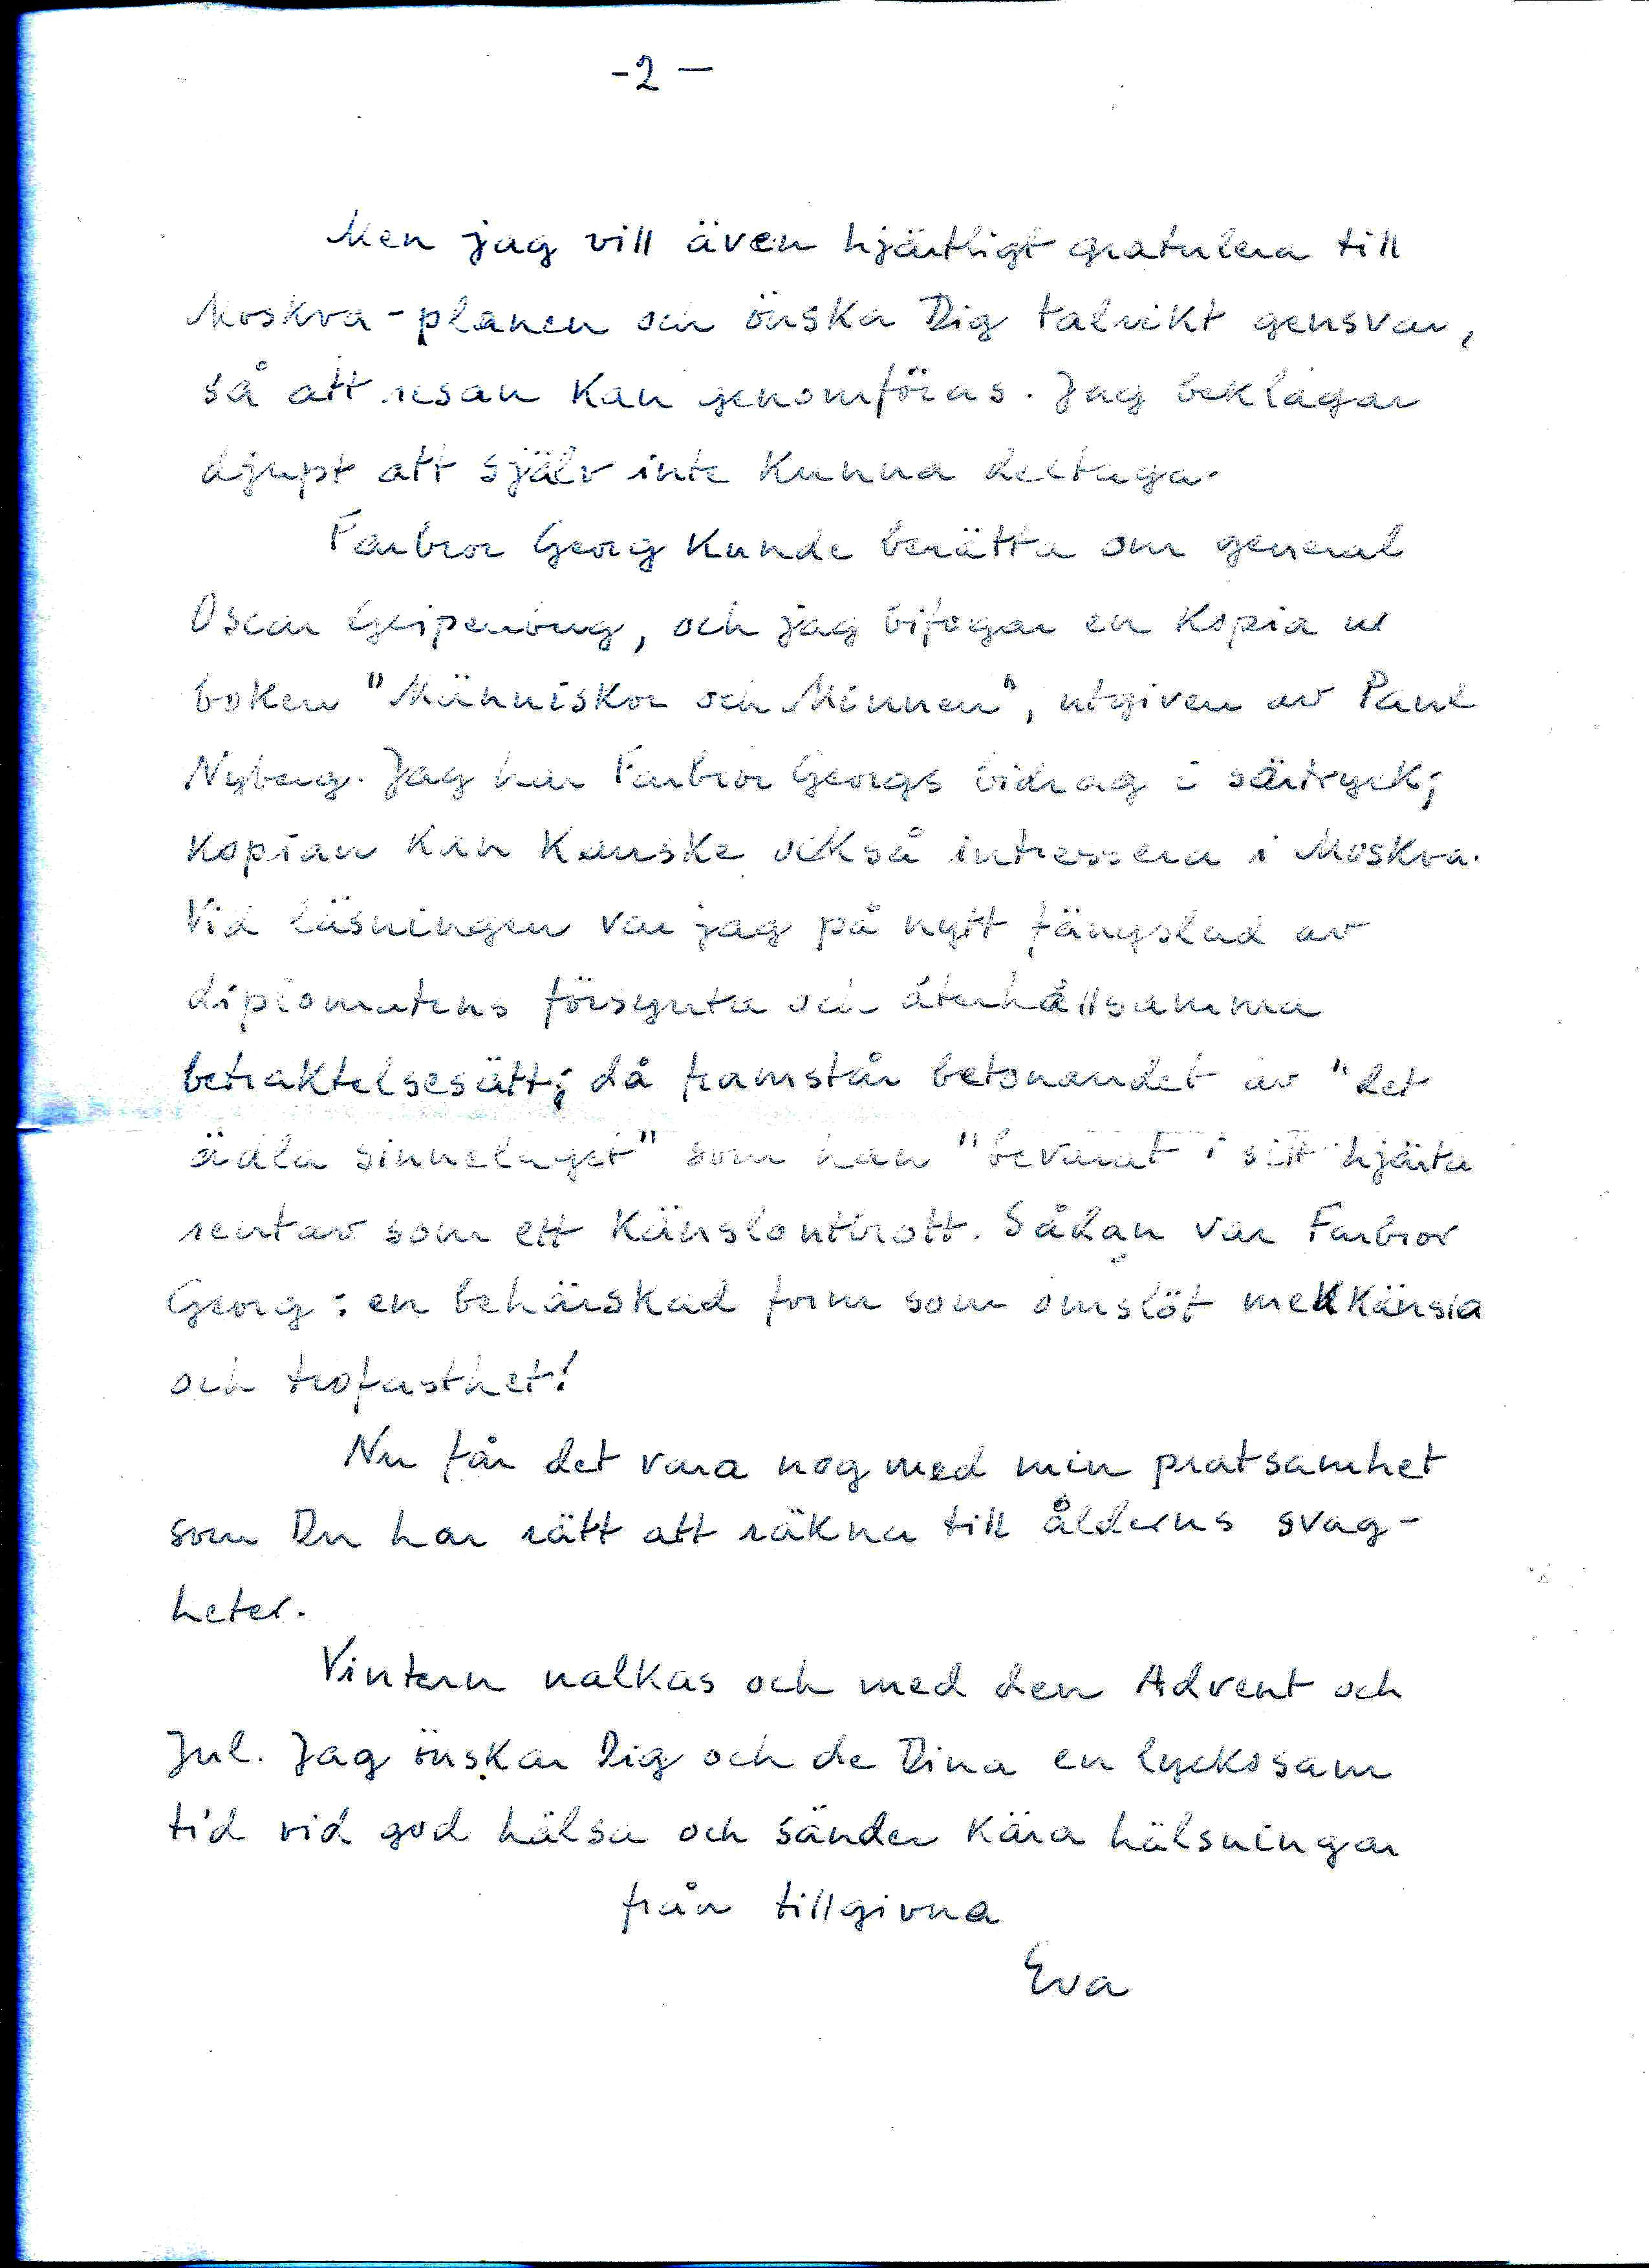 -2-
Men jag vill även hjärtligt gratulera till
Moskva-planen och önska Dig talrikt gensvar,
så att resan kan genomföras. Jag beklagar
djupt att själv inte kunna deltaga.
Farbror Georg kunde berätta om general
Oscar och jag bifogar en kopia ur
boken "Människor och Minnen", utgiven av Paul
Nyberg. Jag har Farbror Georgs bidrag i särtryck;
kopian kan kanske också intressera i Moskva.
Vid läsningen var jag på nytt fängslad av
diplomatens försynta och återhållsamma
betraktelsesätt; då framstår betonandet av "det
ädla sinnelaget" som han "bevarat i sitt hjärta
rentav som ett känsloutbrott. Sådan var Farbror
Georg: en behärskad form som omslöt medkänsla
och trofasthet!
Nu får det vara nog med min pratsamhet
som Du har rätt att räkna till ålderns svag-
heter.
Vintern nalkas och med den Advent och
Jul. Jag önskar Dig och de Dina en lyckosam
tid vid god hälsa och sänder kära hälsningar
från tillgivna
Eva